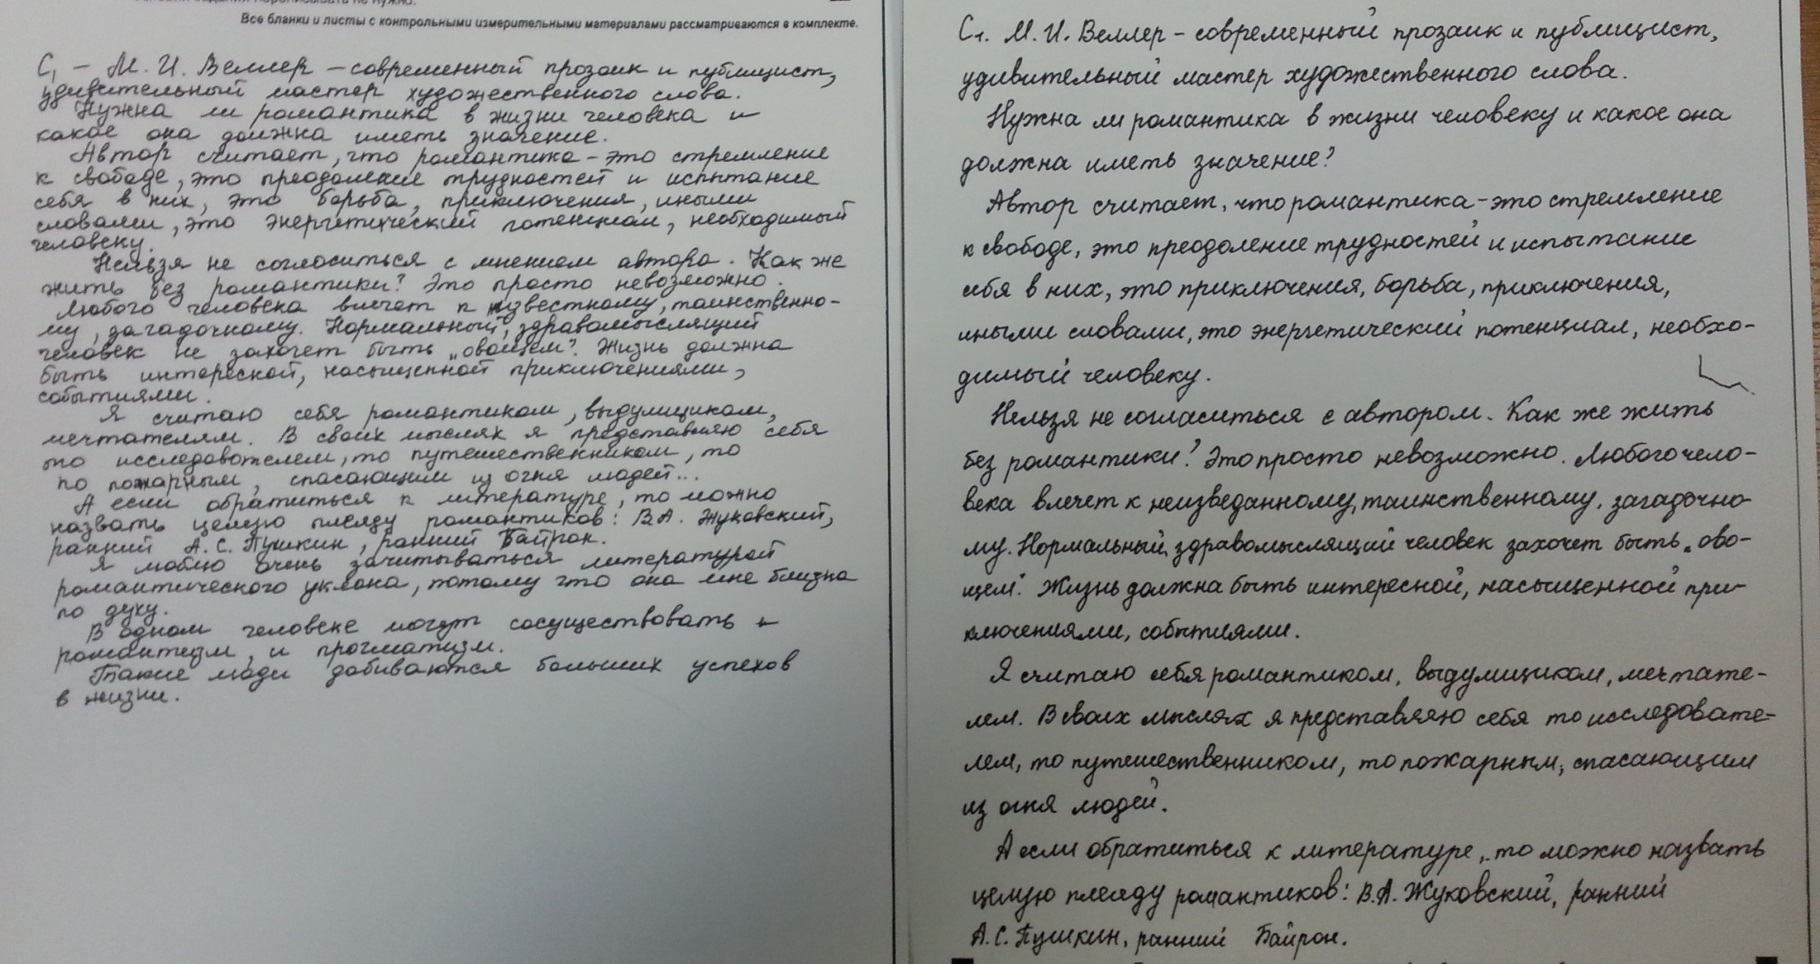 Все бланки и листы с контрольными измерительными материалами рассматриваются в комплекте.
С1 – М. И. Веллер – современный прозаик и публицист,
удивительный мастер художественного слова.
Нужна ли романтика в жизни человека и
какое она должна иметь значение.
Автор считает, что романтика – это стремление
к свободе, это преодоление трудностей и испытание
себя в них, это борьба, приключения, иными
словами, это энергетический потенциал, необходимый
человеку.
Нельзя не согласиться с мнением автора. Как же
жить без романтики? Это просто невозможно.
Любого человека влечет к известному, таинственно-
му, загадочному. Нормальный, здравомыслящий
человек не захочет быть „овощем". Жизнь должна
быть интересной, насыщенной приключениями,
событиями.
Я считаю себя романтиком, выдумщиком,
мечтателем. В своих мыслях я представляю себя
то исследователем, то путешественником, то
по пожарным, спасающим из огня людей...
А если обратиться к литературе, то можно
назвать целую плеяду романтиков: В.А. Жуковский,
ранний А. С. Пушкин, ранний Байрон.
Я люблю очень зачитываться литературой
романтического уклона, потому что она мне близка
по духу.
В одном человеке могут сосуществовать и
романтизм, и прагматизм.
Такие люди добиваются больших успехов
в жизни.
С1. М. И. Веллер – современный прозаик и публицист,
удивительный мастер художественного слова.
Нужна ли романтика в жизни человеку и какое она
должна иметь значение?
Автор считает, что романтика – это стремление
к свободе, это преодоление трудностей и испытание
себя в них, это приключения, борьба, приключения,
иными словами, это энергетический потенциал, необхо-
димый человеку.
Нельзя не согласиться с автором. Как же жить
без романтики? Это просто невозможно. Любого чело-
века влечет к неизведанному, таинственному, загадочно-
му. Нормальный, здравомыслящий человек захочет быть „ово-
щем". Жизнь должна быть интересной, насыщенной при-
ключениями, событиями.
Я считаю себя романтиком, выдумщиком, мечтате-
лем. В своих мыслях я представляю себя то исследовате-
лем, то путешественником, то пожарным, спасающим
из огня людей.
А если обратиться к литературе, то можно назвать
целую плеяду романтиков: В.А. Жуковский, ранний
А.С. Пушкин, ранний Байрон.